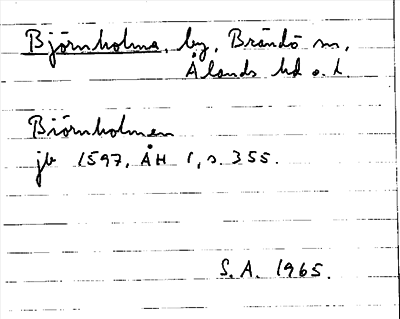 Björnholma, by, Brändö sn,
Ålands hd o. l.
Biörnholmen
jb 1597, ÅH 1, s. 355.
S. A. 1965.